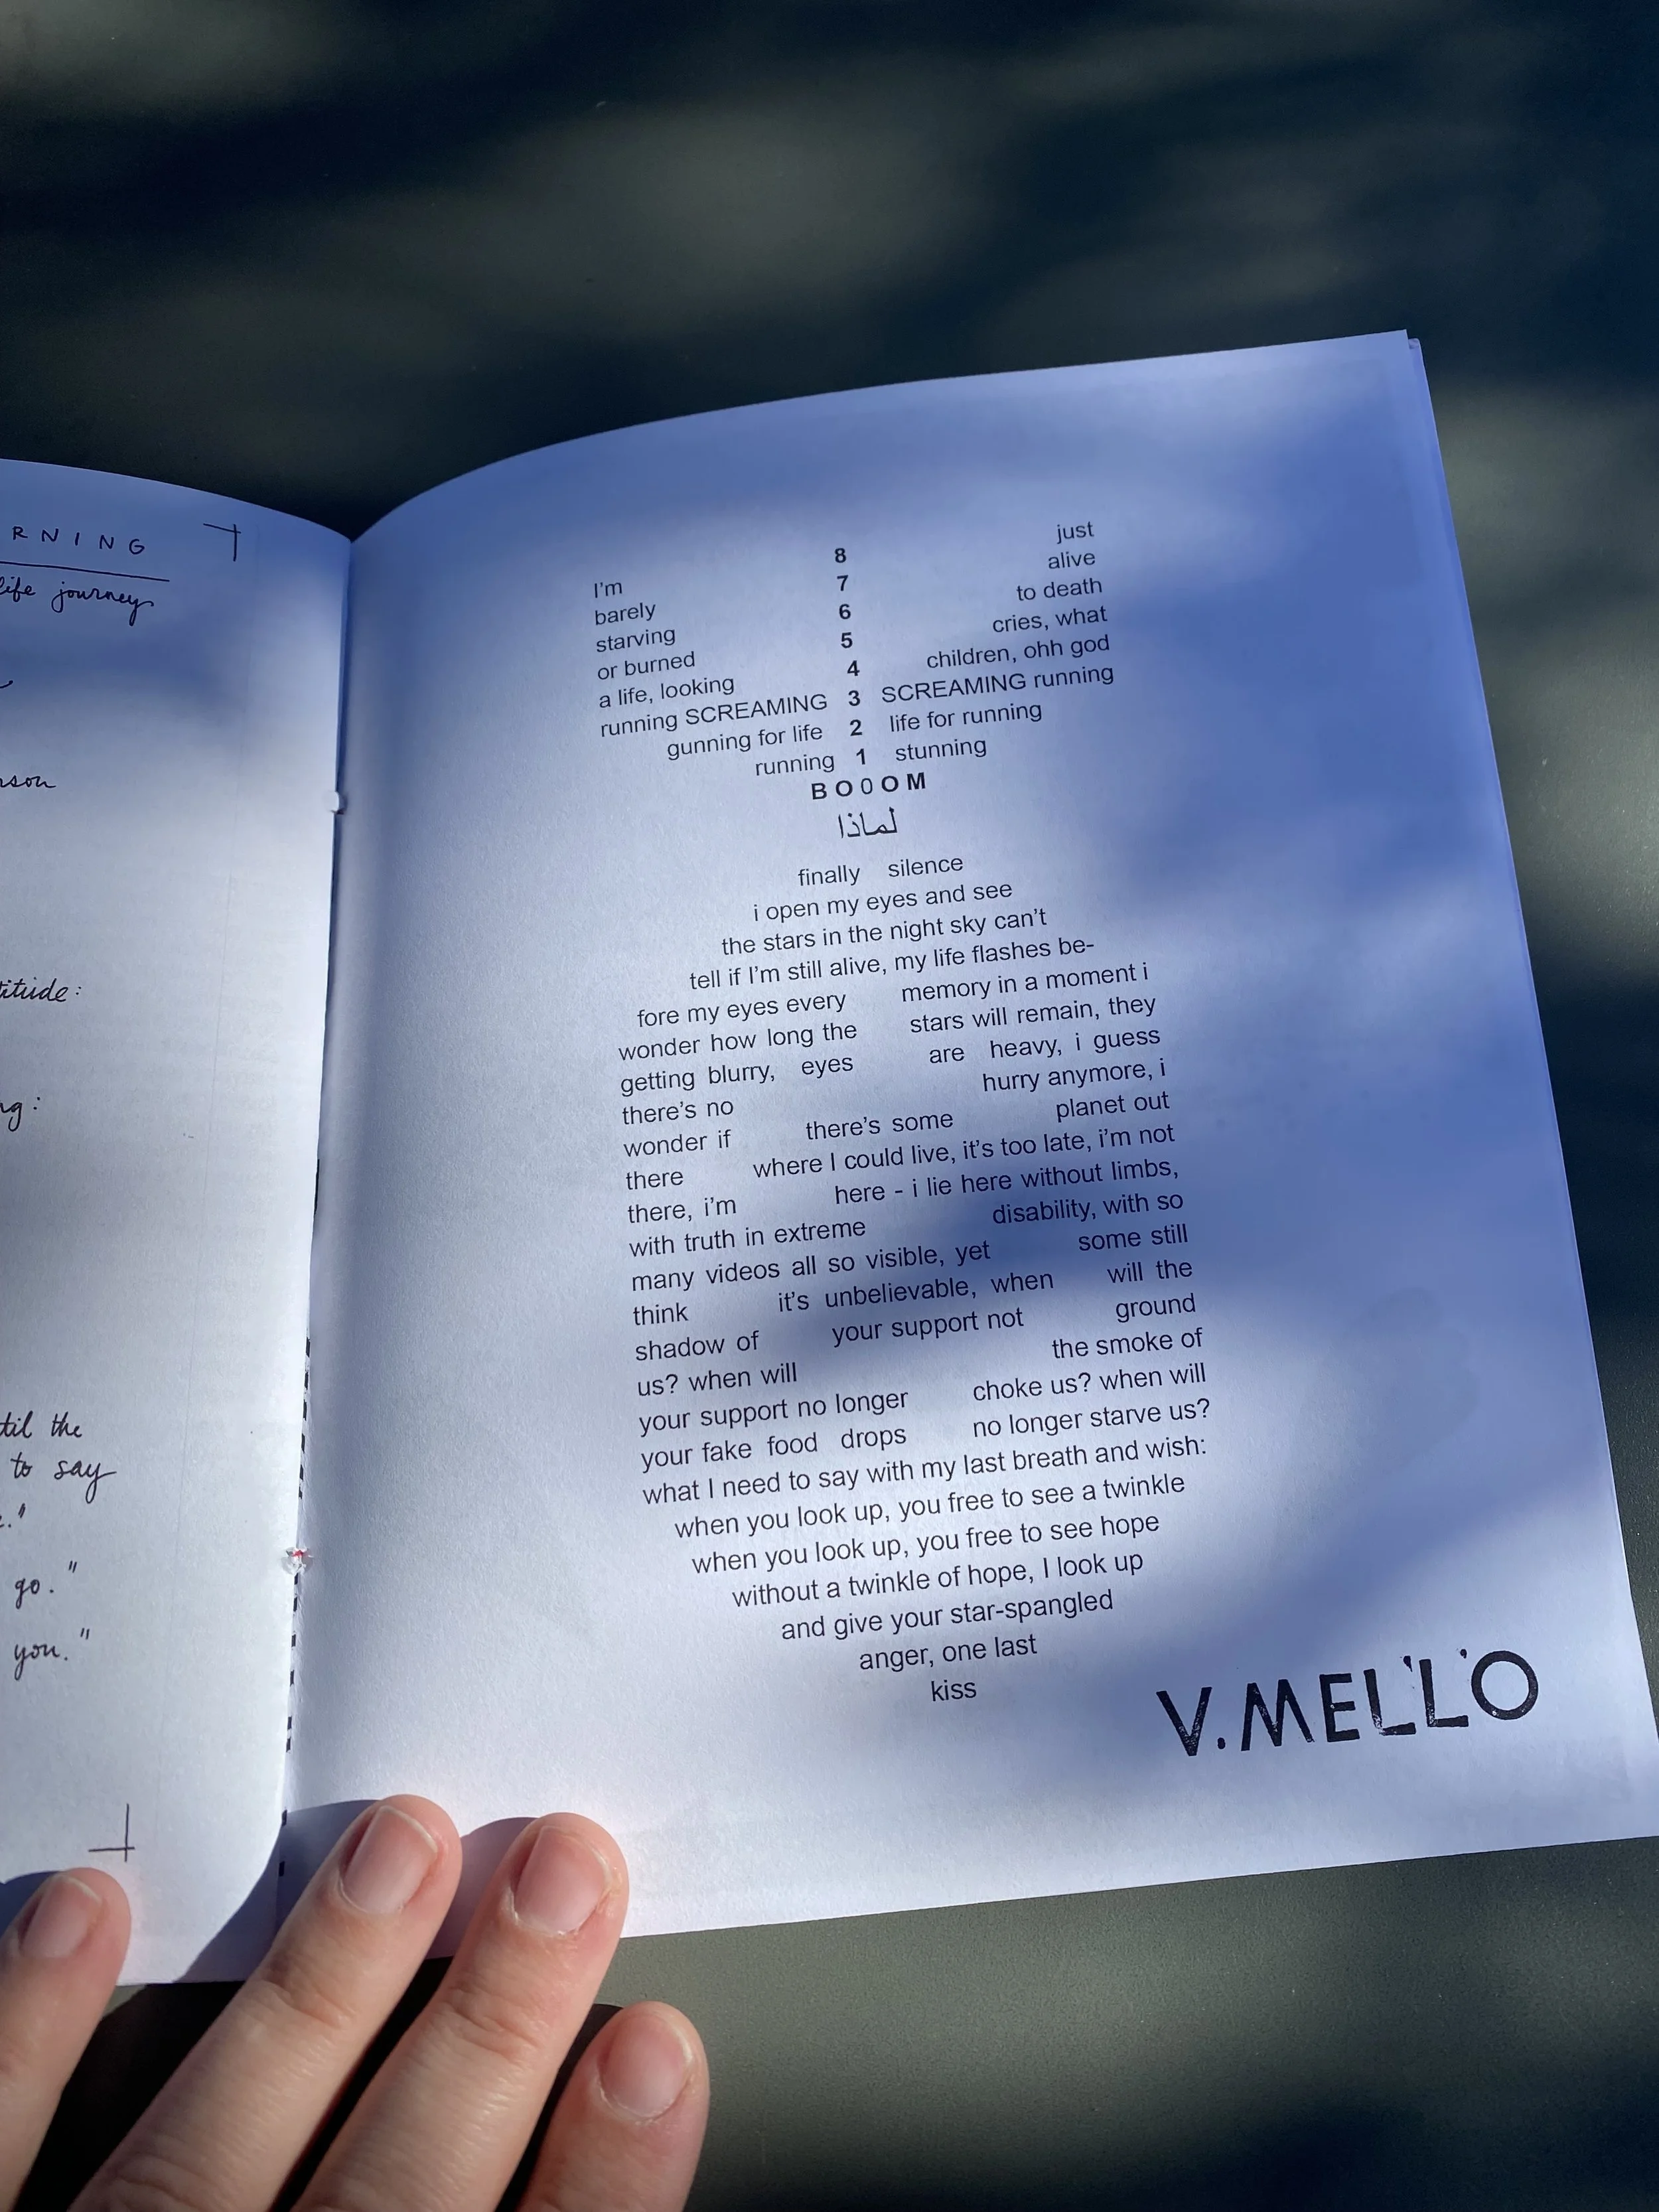 RNING
life journey
son
titude:
ng:
til the
to say
."
go."
you."
I'm 8 just
barely 7 alive
starving 6 to death
or burned 5 cries, what
a life, looking 4 children, ohh god
running SCREAMING 3 SCREAMING running
gunning for life 2 life for running
running 1 stunning
BO0OM
لماذا
finally silence
i open my eyes and see
the stars in the night sky can't
tell if I'm still alive, my life flashes be-
fore my eyes every memory in a moment i
wonder how long the stars will remain, they
getting blurry, eyes are heavy, i guess
there's no hurry anymore, i
wonder if there's some planet out
there where I could live, it's too late, i'm not
there, i'm here - i lie here without limbs,
with truth in extreme disability, with so
many videos all so visible, yet some still
think it's unbelievable, when will the
shadow of your support not ground
us? when will the smoke of
your support no longer choke us? when will
your fake food drops no longer starve us?
what I need to say with my last breath and wish:
when you look up, you free to see a twinkle
when you look up, you free to see hope
without a twinkle of hope, I look up
and give your star-spangled
anger, one last
kiss
V.MELLO